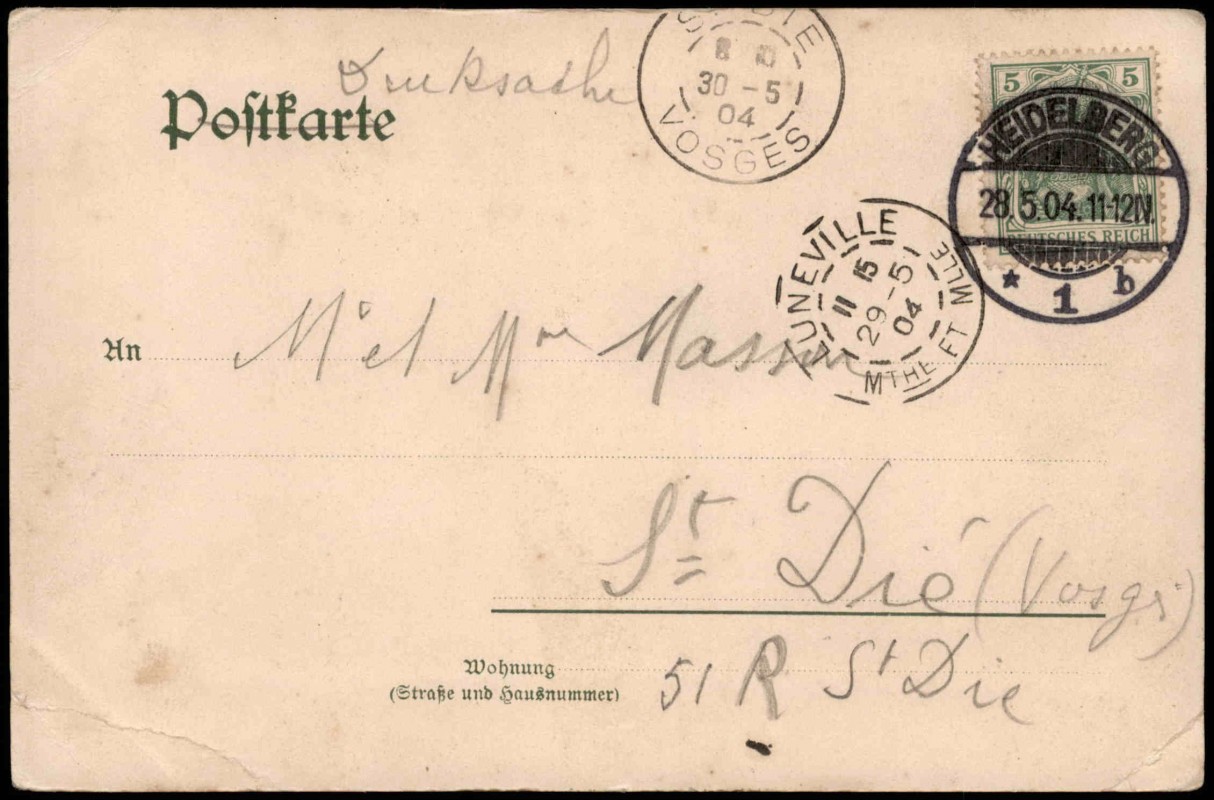 Drucksache
Postkarte
ST DIE
8 10
30 - 5
04
VOSGES
5 5
DEUTSCHES REICH
HEIDELBERG
28.5.04.11-12N.
* 1 b
LUNEVILLE
11 15
29 - 5
04
MTHE ET MLLE
An M et Mme Masson
St Dié (Vosges)
Wohnung
(Straße und Hausnummer)
51 R St Die